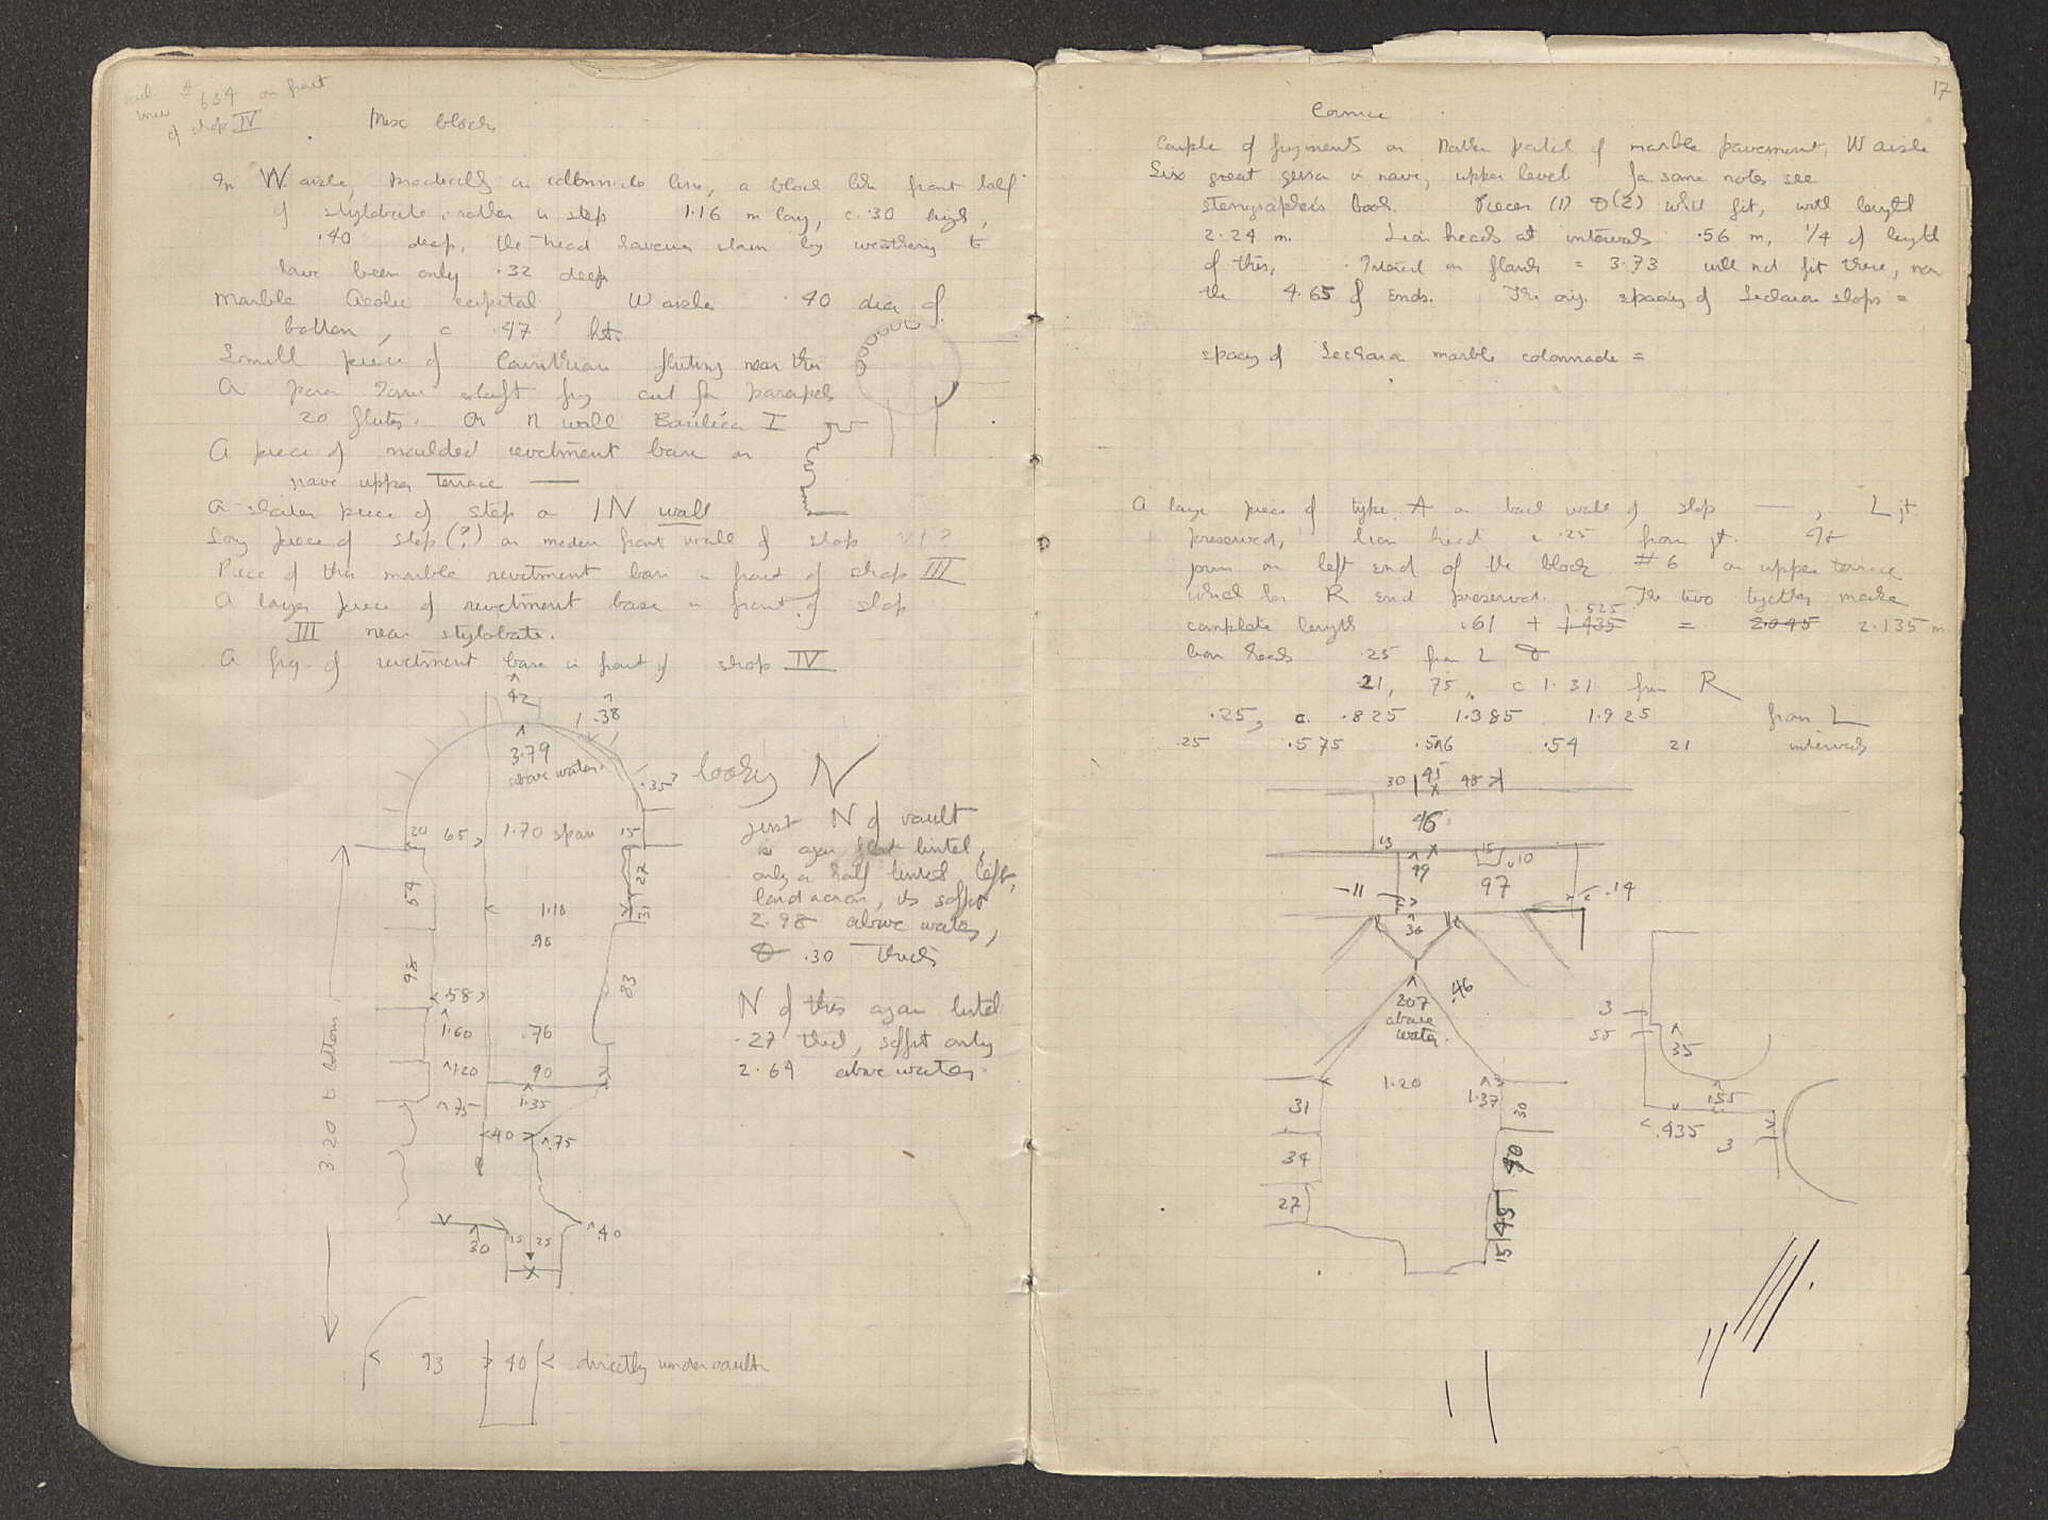 # 634 on front
of shop IV
Misc blocks
In W. aisle, practically on colonnade line, a block like front half
of stylobate, rather a step 1.16 m long, c. .30 high,
.40 deep, the head having shrunk by weathering to
have been only .32 deep
Marble Aeolic capital, W aisle .40 dia of
bottom, c .47 ht.
Small piece of Corinthian fluting near this
A poros Ionic shaft frg cut for parapets
20 flutes. On N wall Basilica I
A piece of moulded revetment base on
nave upper terrace —
A similar piece of step on IN wall
Long piece of step (?) on modern front wall of shop VI?
Piece of thin marble revetment base in front of shop III
A larger piece of revetment base in front of shop
III near stylobate.
A frg. of revetment base in front of shop IV
42
.38
3.79
above water
.35?
looking N
20 65 1.70 span 15
just N of vault
is again flat lintel,
only a half lintel left,
laid across, its soffit
2.98 above water,
& .30 thick
N of this again lintel
.27 thick, soffit only
2.64 above water.
54
27
31
1.10
.90
98
83
.58
1.60 .76
1.20 90
.75 1.35
40 .75
3.20 to bottom
30 15 25 .40
93 40 directly under vault
17
Cornice
Couple of fragments on Northern patch of marble pavement, W aisle
Six great geisa in nave, upper level. For some notes see
stenographer's book. Pieces (1) & (2) will fit, with length
2.24 m. Lion heads at intervals .56 m, 1/4 of length
of this, Interval on flanks = 3.73 will not fit there, nor
the 4.65 of ends. The orig. spacing of Lechaion shops =
spacing of Lechaion marble colonnade =
A large piece of type A on back wall of shop —, L jt
preserved, lion head c .25 from jt. It
joins on left end of the block #6 on upper terrace
which has R end preserved. The two together make
1.525
complete length .61 + 1.435 = 2.045 2.135 m
lion heads .25 from L &
.21, 75, c 1.31 from R
.25, c. .825 1.385 1.925 from L
.25 .575 .56 .54 21 intervals
30 45 48
46
13 99 15 10
97
11 .14
36
207
above
water
.46
3
55
35
1.20 1.37
31 30
34 90
27 45
15
.55
.435
3